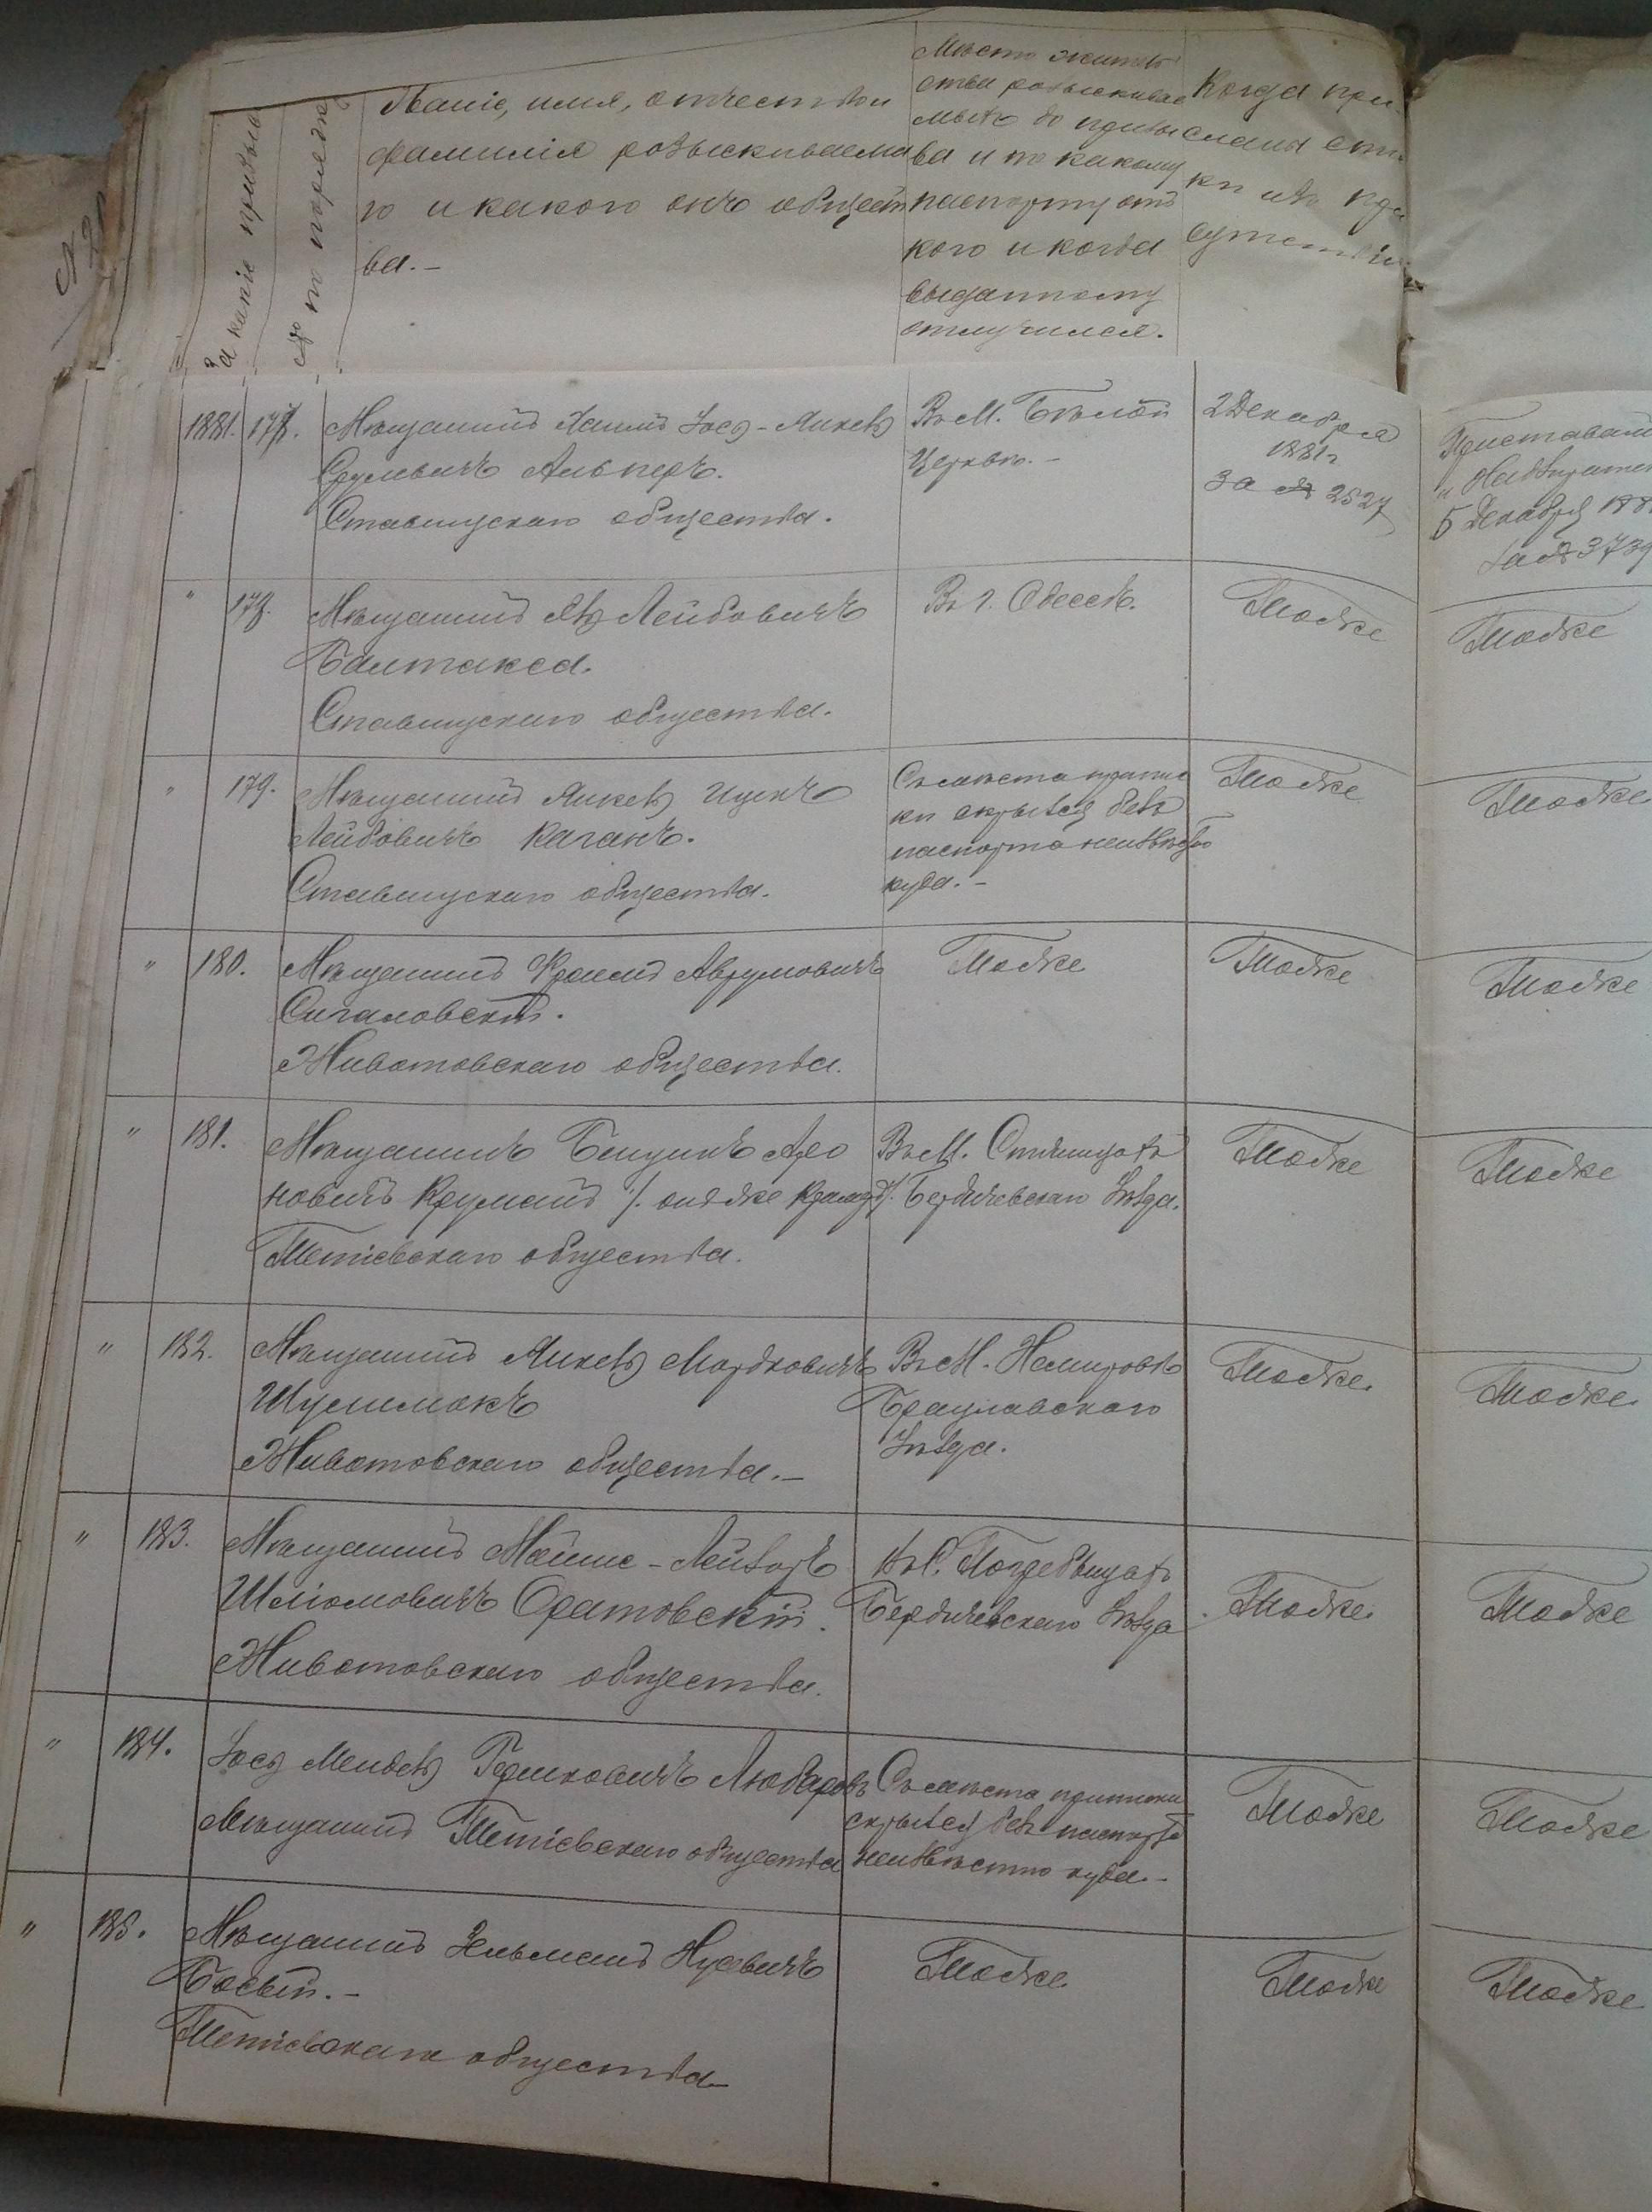 За какіе призывы
№ по порядку
Званіе, имя, отчество и
фамилія розыскиваема
го и какого онъ общест
ва.-
Мѣсто житель
ства розыскивае
маго до призы
ва и по какому
паспорту отъ
кого и когда
выданному
отлучился.
Когда при
сланы спис
ки изъ при
сутствія
1881. 177. Мѣщанинъ Хаимъ Іось-Янкель
Срулевичъ Альперъ.
Ставищскаго общества.
Въ М. Бѣлой
Церкви.-
2 Декабря
1881 г
За № 2527
Приставам
и Надзирател
5 Декабря 188
за № 3739
" 178. Мѣщанинъ Лейбовичъ
Балтакса.
Ставищскаго общества.
Въ г. Одессѣ.
Тоже
Тоже
" 179. Мѣщанинъ Янкель Ицекъ
Лейбовичъ Каганъ.
Ставищскаго общества.
Съ мѣста припис
ки скрылся безъ
паспорта неизвѣстно
куда.-
Тоже
Тоже
" 180. Мѣщанинъ Аврумовичъ
Сигаловскій.
Животовскаго общества.
Тоже
Тоже
Тоже
" 181. Мѣщанинъ Беньуминъ Аро
новичъ Круманъ /. онъ же
Тетіевскаго общества.
Въ М.
Бердичевскаго Уѣзда.
Тоже
Тоже
" 182. Мѣщанинъ Янкель Мордковичъ
Шулимокъ
Животовскаго общества.-
Въ М. Немировѣ
Брацлавскаго
Уѣзда.
Тоже.
Тоже.
" 183. Мѣщанинъ Мойше-Лейзоръ
Шліомовичъ Оратовскій.
Животовскаго общества.
Въ С. Погребищахъ
Бердичевскаго Уѣзда
Тоже.
Тоже
" 184. Іось Мендель Гершковичъ Любаровъ
Мѣщанинъ Тетіевскаго общества
Съ мѣста приписки
скрылся безъ паспорта
неизвѣстно куда.-
Тоже
Тоже
" 185. Мѣщанинъ Зельманъ Нусевичъ
Босый.-
Тетіевскаго общества
Тоже.
Тоже
Тоже